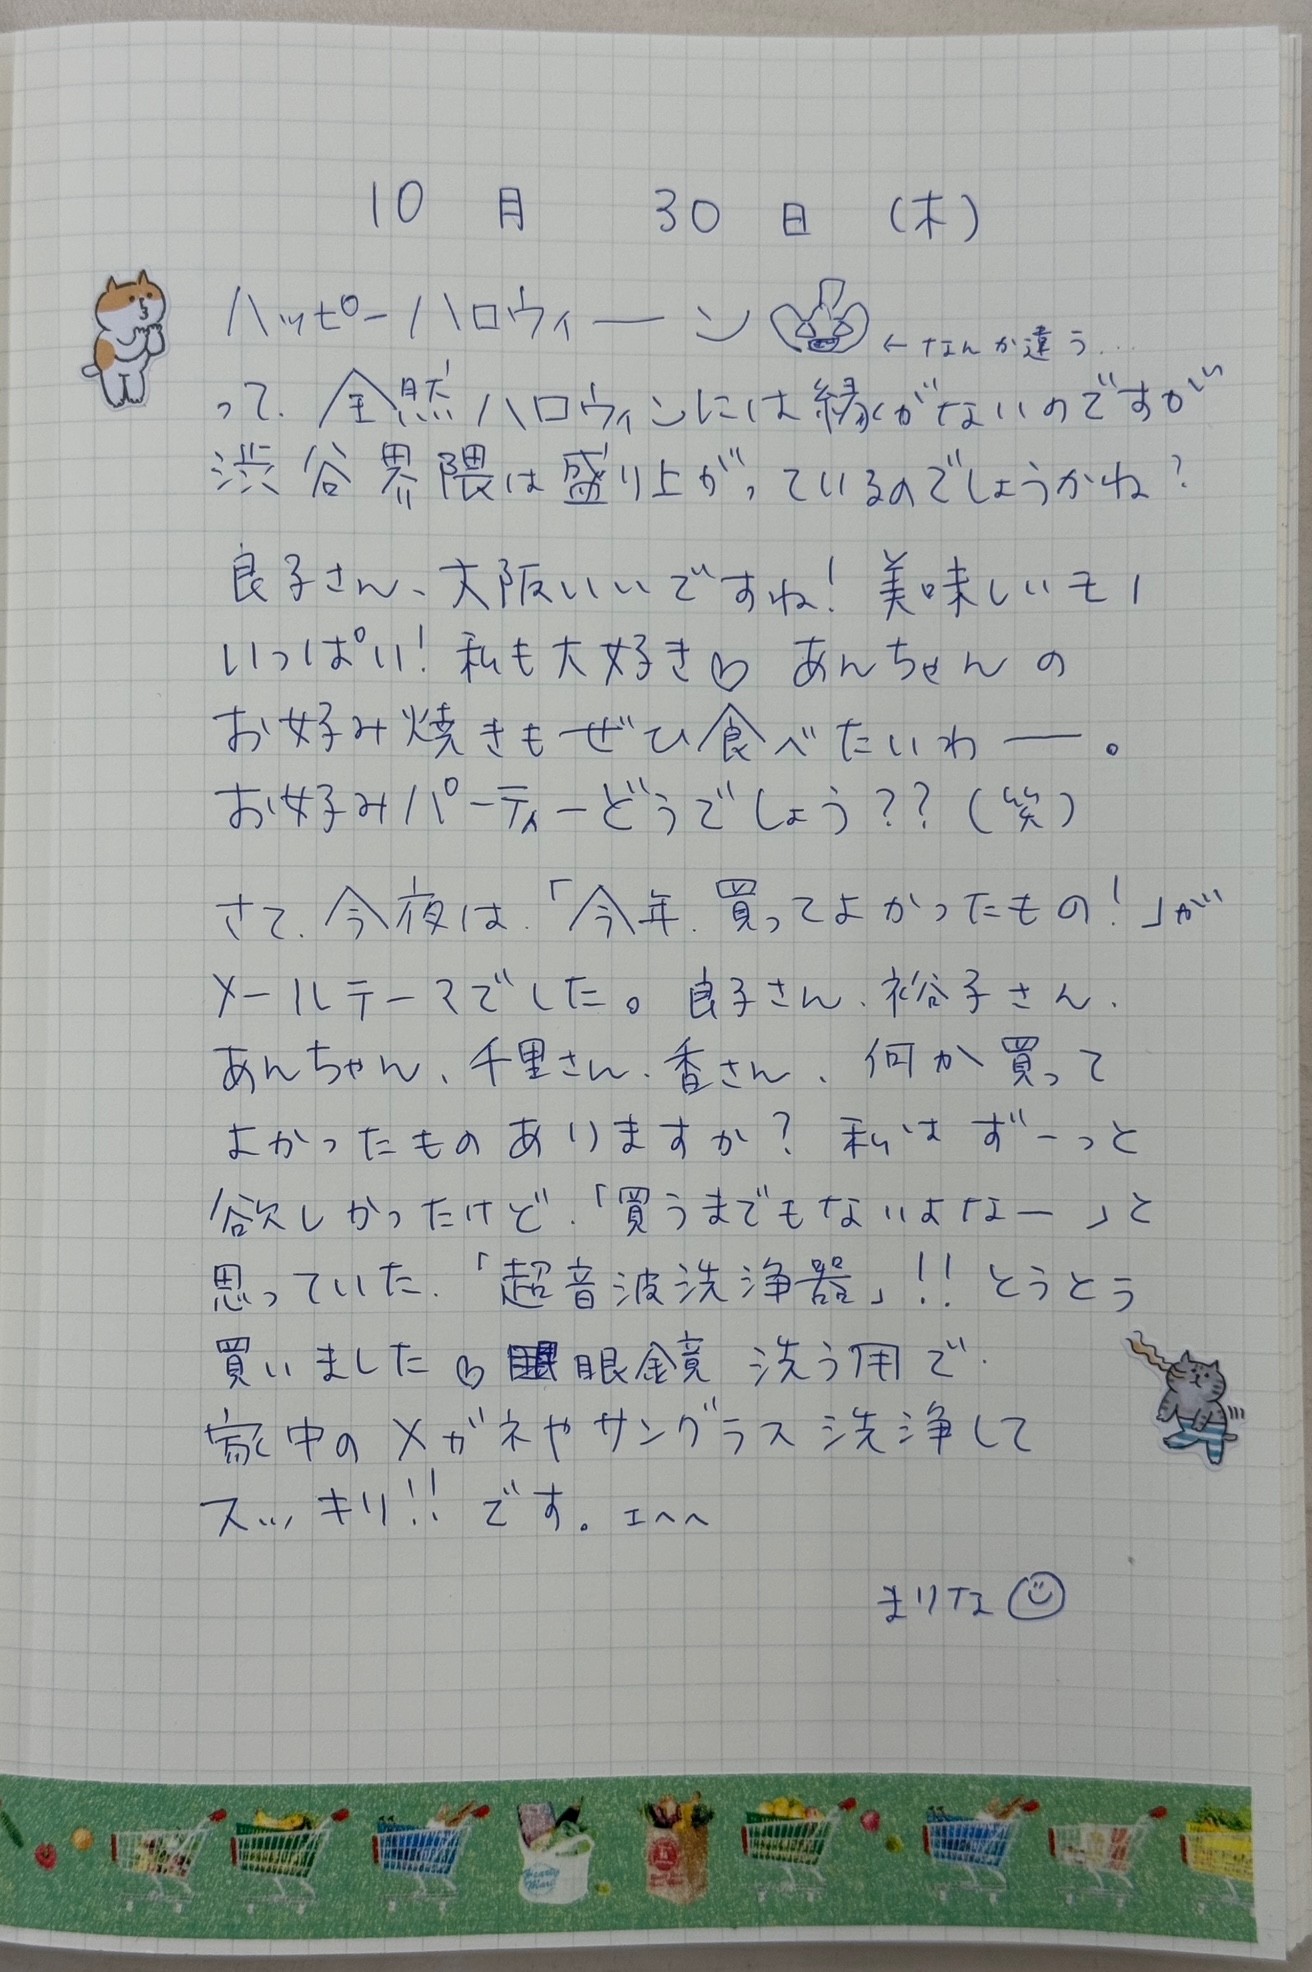 10月 30日 (木)
ハッピーハロウィーン
←なんか違う...
って、全然ハロウィンには縁がないのですが
渋谷界隈は盛り上がっているのでしょうかね?
良子さん、大阪いいですね! 美味しいモノ
いっぱい! 私も大好き♡ あんちゃんの
お好み焼きもぜひ食べたいわー。
お好みパーティーどうでしょう??(笑)
さて、今夜は、「今年、買ってよかったもの!」が
メールテーマでした。良子さん、裕子さん、
あんちゃん、千里さん、香さん、何か買って
よかったものありますか? 私はずーっと
欲しかったけど、「買うまでもないよなー」と
思っていた、「超音波洗浄器」!! とうとう
買いました♡ 眼鏡 洗う用で、
家中のメガネやサングラス洗浄して
スッキリ!! です。エヘヘ
まりな
Hearty Mart